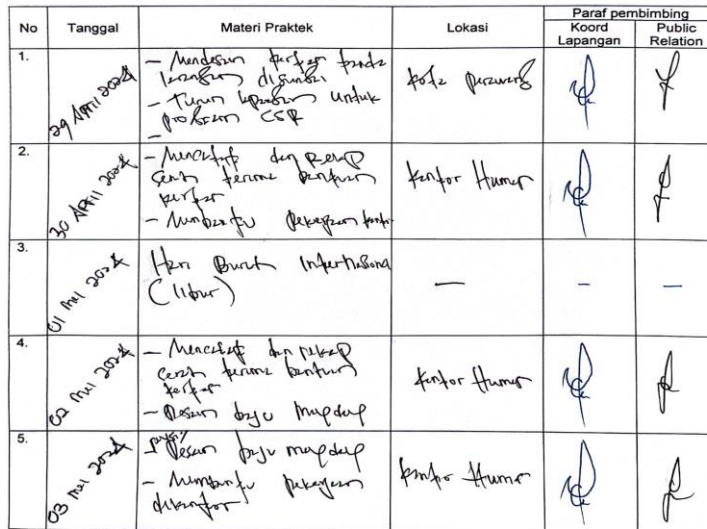 No Tanggal Materi Praktek Lokasi Paraf pembimbing
Koord Lapangan Public Relation
1.
29 April 2024
- Mendesain
- Turun lapangan untuk
program CSR
-
2.
30 April 2024
- Mencatat dan Rekap
serah terima bantuan
- Membantu pekerjaan kantor
Kantor Humas
3.
01 Mei 2024
Hari Buruh Internasional
(libur)
— – —
4.
02 Mei 2024
- Mencatat dan rekap
serah terima bantuan
- Desain baju
Kantor Humas
5.
03 Mei 2024
Desain baju
- Membantu pekerjaan
dikantor
Kantor Humas